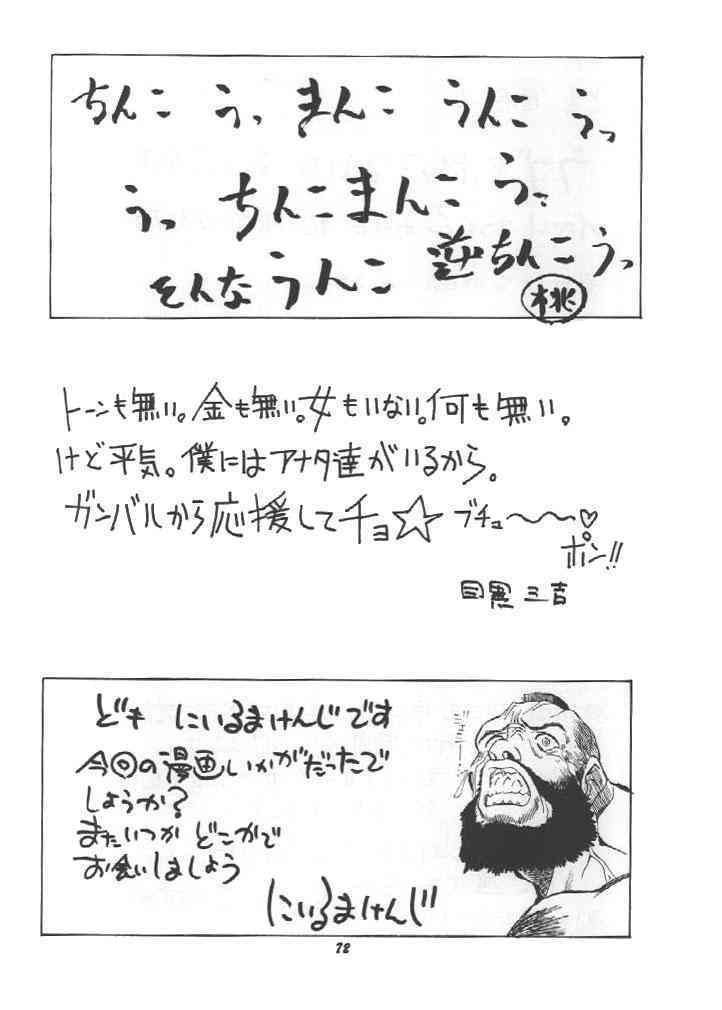 ちんこ うっ まんこ うんこ うっ
うっ ちんこまんこ うっ
そんなうんこ 逆ちんこうっ
桃
トーンも無い。金も無い。女もいない。何も無い。
けど平気。僕にはアナタ達がいるから。
ガンバルから応援してチョ☆ ブチュ〜〜〜♡
ポン!!
目黒三吉
ども にいるまけんじです
今回の漫画いかがだったで
しょうか?
またいつか どこかで
お会いしましょう
にいるまけんじ
72